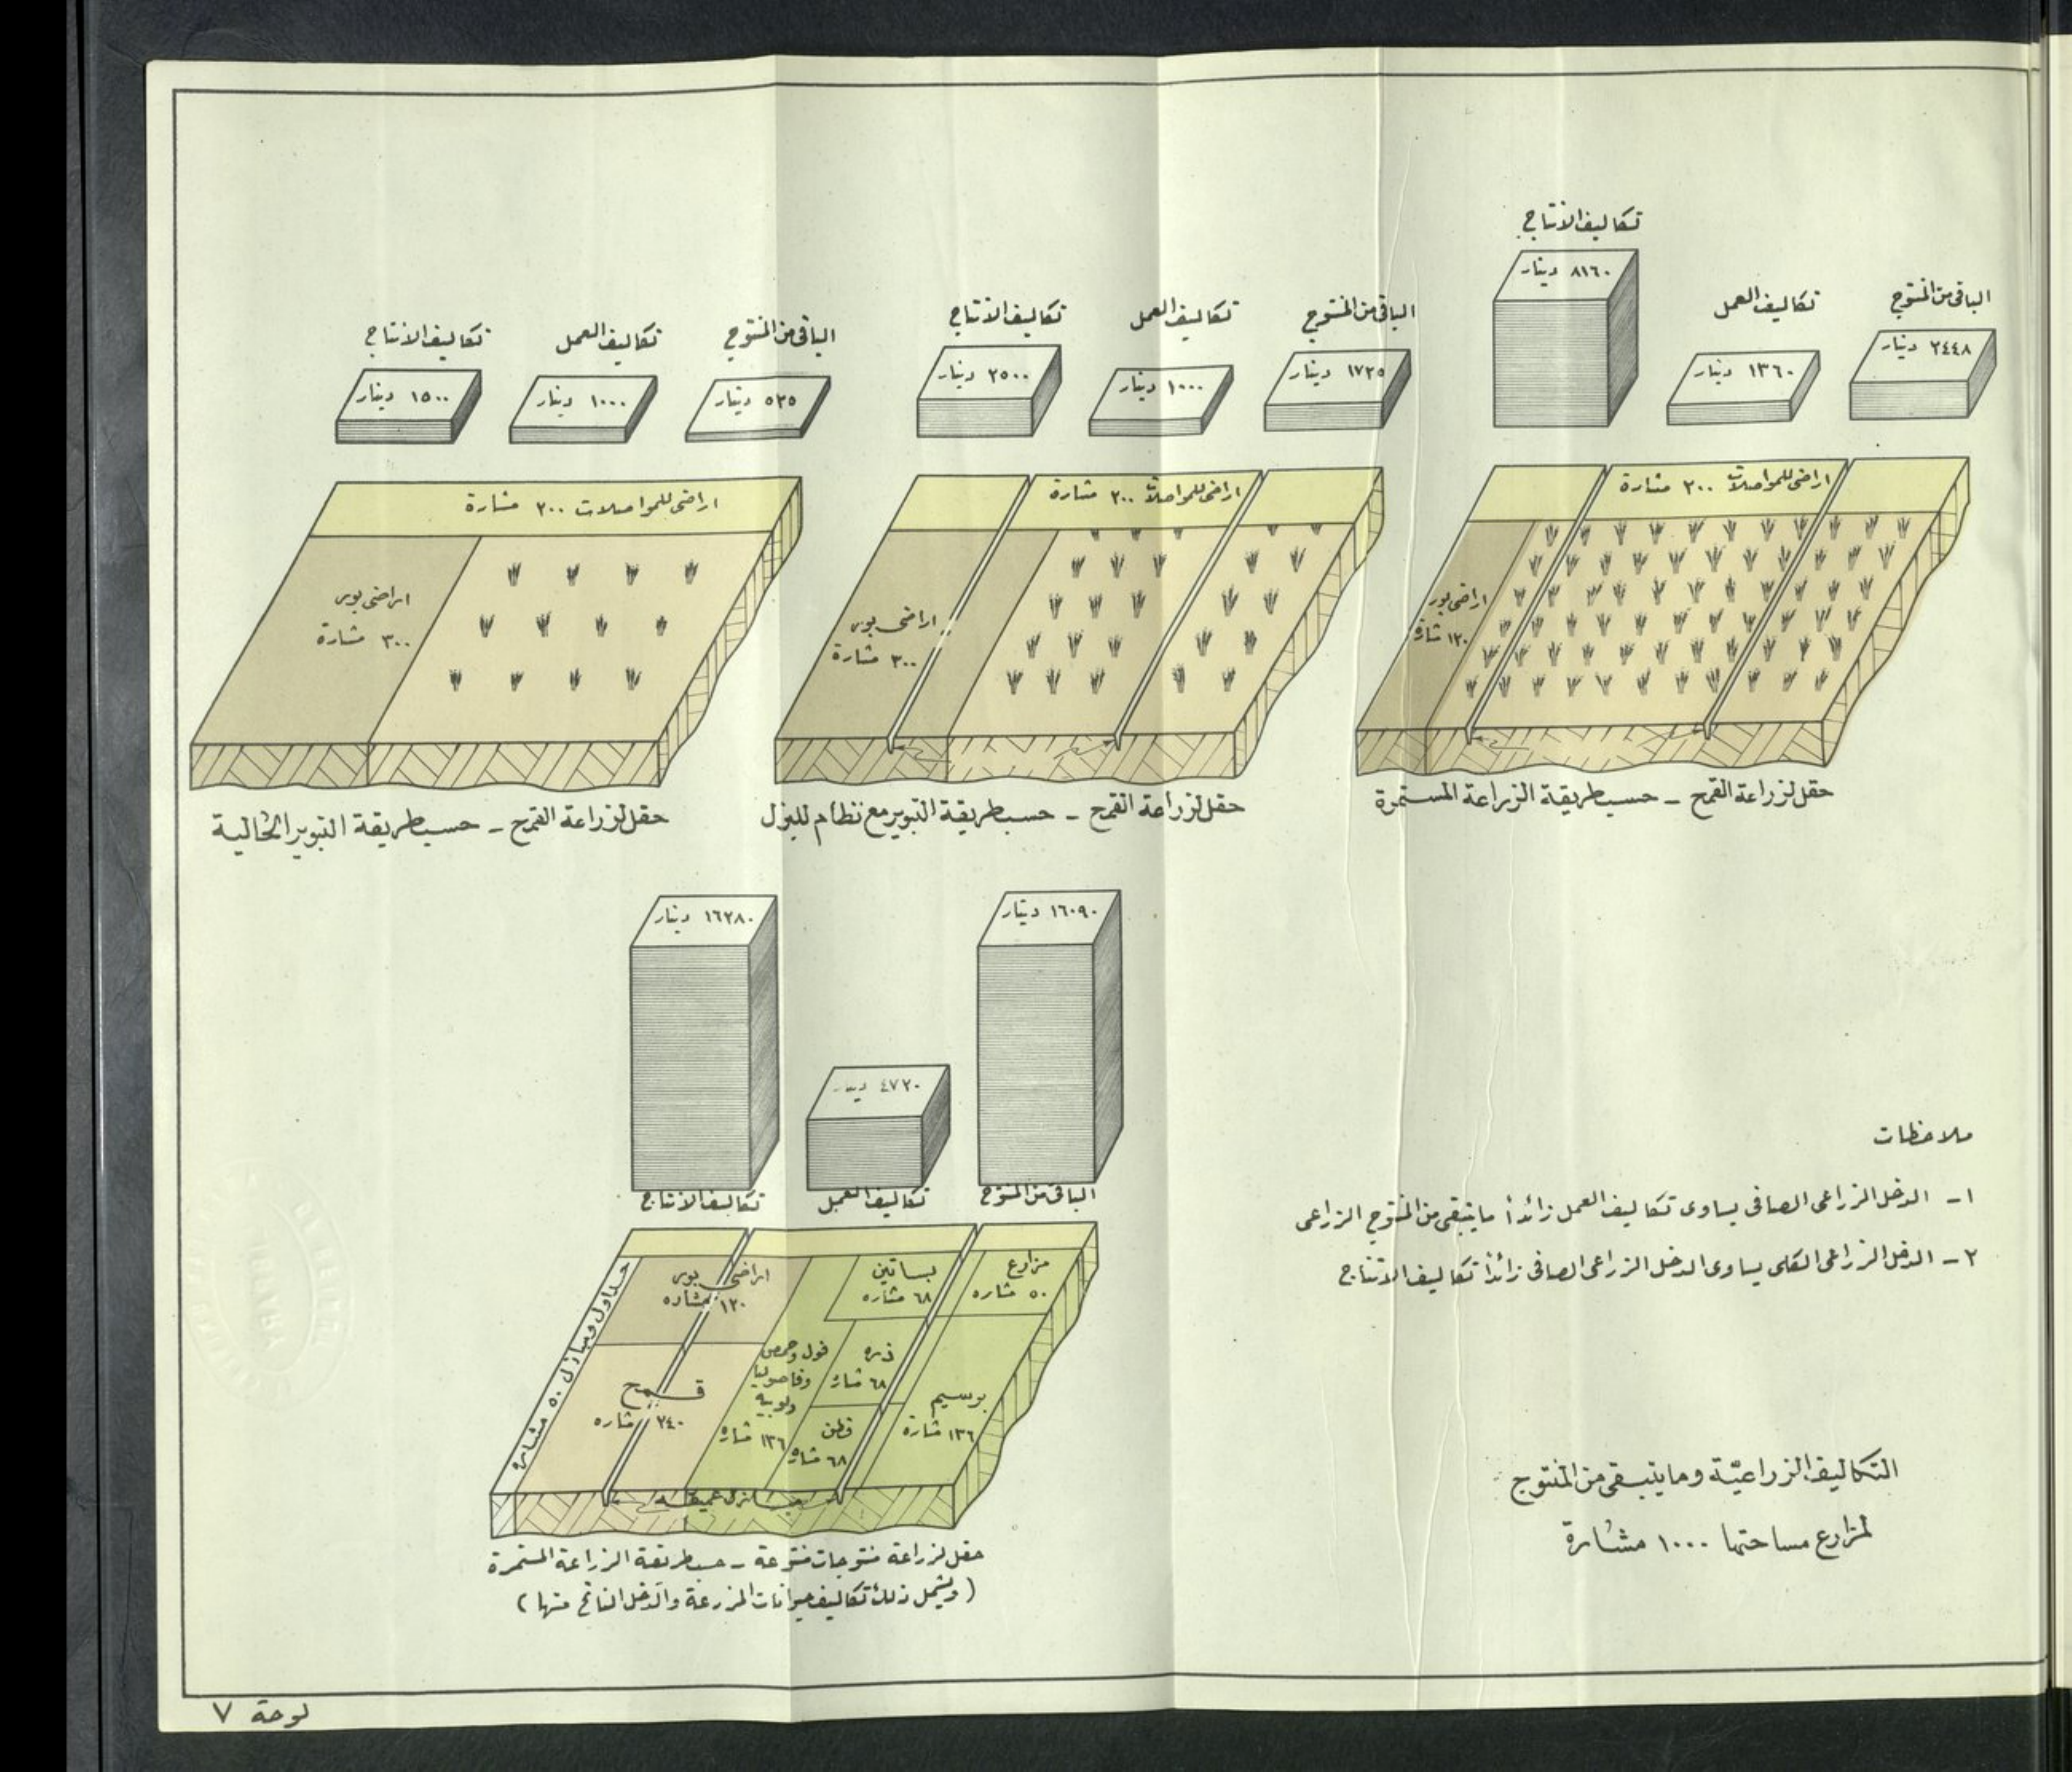 تكاليف الانتاج
٨١٦٠ دينار
تكاليف العمل
١٣٦٠ دينار
الباقي من المنتوج
٢٤٤٨ دينار
اراضي للمواصلات ٢٠٠ مشارة
اراضي بور
١٢٠ مشارة
حقل لزراعة القمح – حسب طريقة الزراعة المستمرة
تكاليف الانتاج
٢٥٠٠ دينار
تكاليف العمل
١٠٠٠ دينار
الباقي من المنتوج
١٧٢٥ دينار
اراضي للمواصلات ٢٠٠ مشارة
اراضي بور
٣٠٠ مشارة
حقل لزراعة القمح – حسب طريقة التبوير مع نظام للبزل
تكاليف الانتاج
١٥٠٠ دينار
تكاليف العمل
١٠٠٠ دينار
الباقي من المنتوج
٥٢٥ دينار
اراضي للمواصلات ٢٠٠ مشارة
اراضي بور
٣٠٠ مشارة
حقل لزراعة القمح – حسب طريقة التبوير الحالية
١٦٠٩٠ دينار
الباقي من المنتوج
٤٧٢٠ دينار
تكاليف العمل
١٦٢٨٠ دينار
تكاليف الانتاج
مزارع
٥٠ مشاره
بساتين
٦٨ مشاره
اراضي بور
١٢٠ مشاره
جداول ومبازل ٥٠ مشاره
ذره
٦٨ مشاره
فول وحمص
وفاصوليا
ولوبيه
١٣٦ مشاره
برسيم
١٣٦ مشارة
قطن
٦٨ مشاره
قمح
٢٤٠ مشاره
مبازل عميقه
حقل لزراعة منتوجات متنوعة – حسب طريقة الزراعة المستمرة
(ويشمل ذلك تكاليف حيوانات المزرعة والدخل الناتج منها)
ملاحظات
١– الدخل الزراعي الصافي يساوي تكاليف العمل زائداً مايتبقى من المنتوج الزراعي
٢– الدخل الزراعي الكلي يساوي الدخل الزراعي الصافي زائداً تكاليف الانتاج
التكاليف الزراعيّة ومايتبقى من المنتوج
لمزارع مساحتها ١٠٠٠ مشارة
لوحة ٧